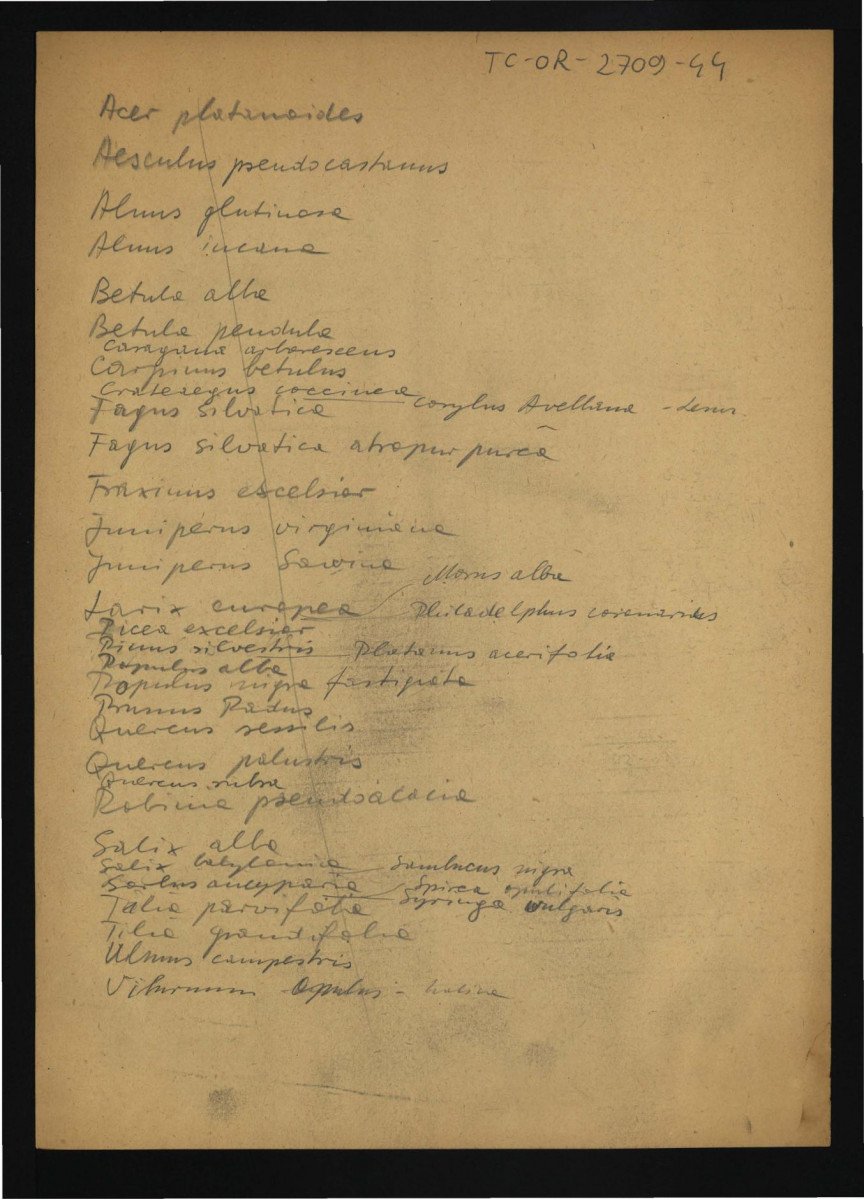 TC-OR-2709-44
Acer platanoides
Aesculus pseudocastanus
Alnus glutinosa
Alnus incana
Betula alba
Betula pendula
Caragana arborescens
Carpinus betulus
Crataeegus coccinea
Corylus Avellana
Fagus silvatica
Fagus silvatica atropurpurea
Fraxinus excelsior
Juniperus virginiana
Juniperus Savina
Morus alba
Larix europea
Philadelphus coronarius
Picea excelsior
Pinus silvestris
Platanus acerifolia
Populus alba
Populus nigra fastigiata
Prunus Padus
Quercus sessilis
Quercus palustris
Quercus rubra
Robinia pseudoacacia
Salix alba
Salix babylonica
Sambucus nigra
Sorbus aucyparia
Spirea opulifolia
Syringa vulgaris
Tilia parvifolia
Tilia grandifolia
Ulmus campestris
Viburnum Opulus -